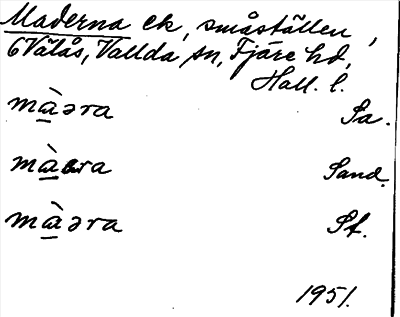 Maderna ek, småställen,
6 Välås, Vallda sn, Fjäre hd,
Hall. l.
màəra Sa.
màəra Sand.
màəra St.
1951.